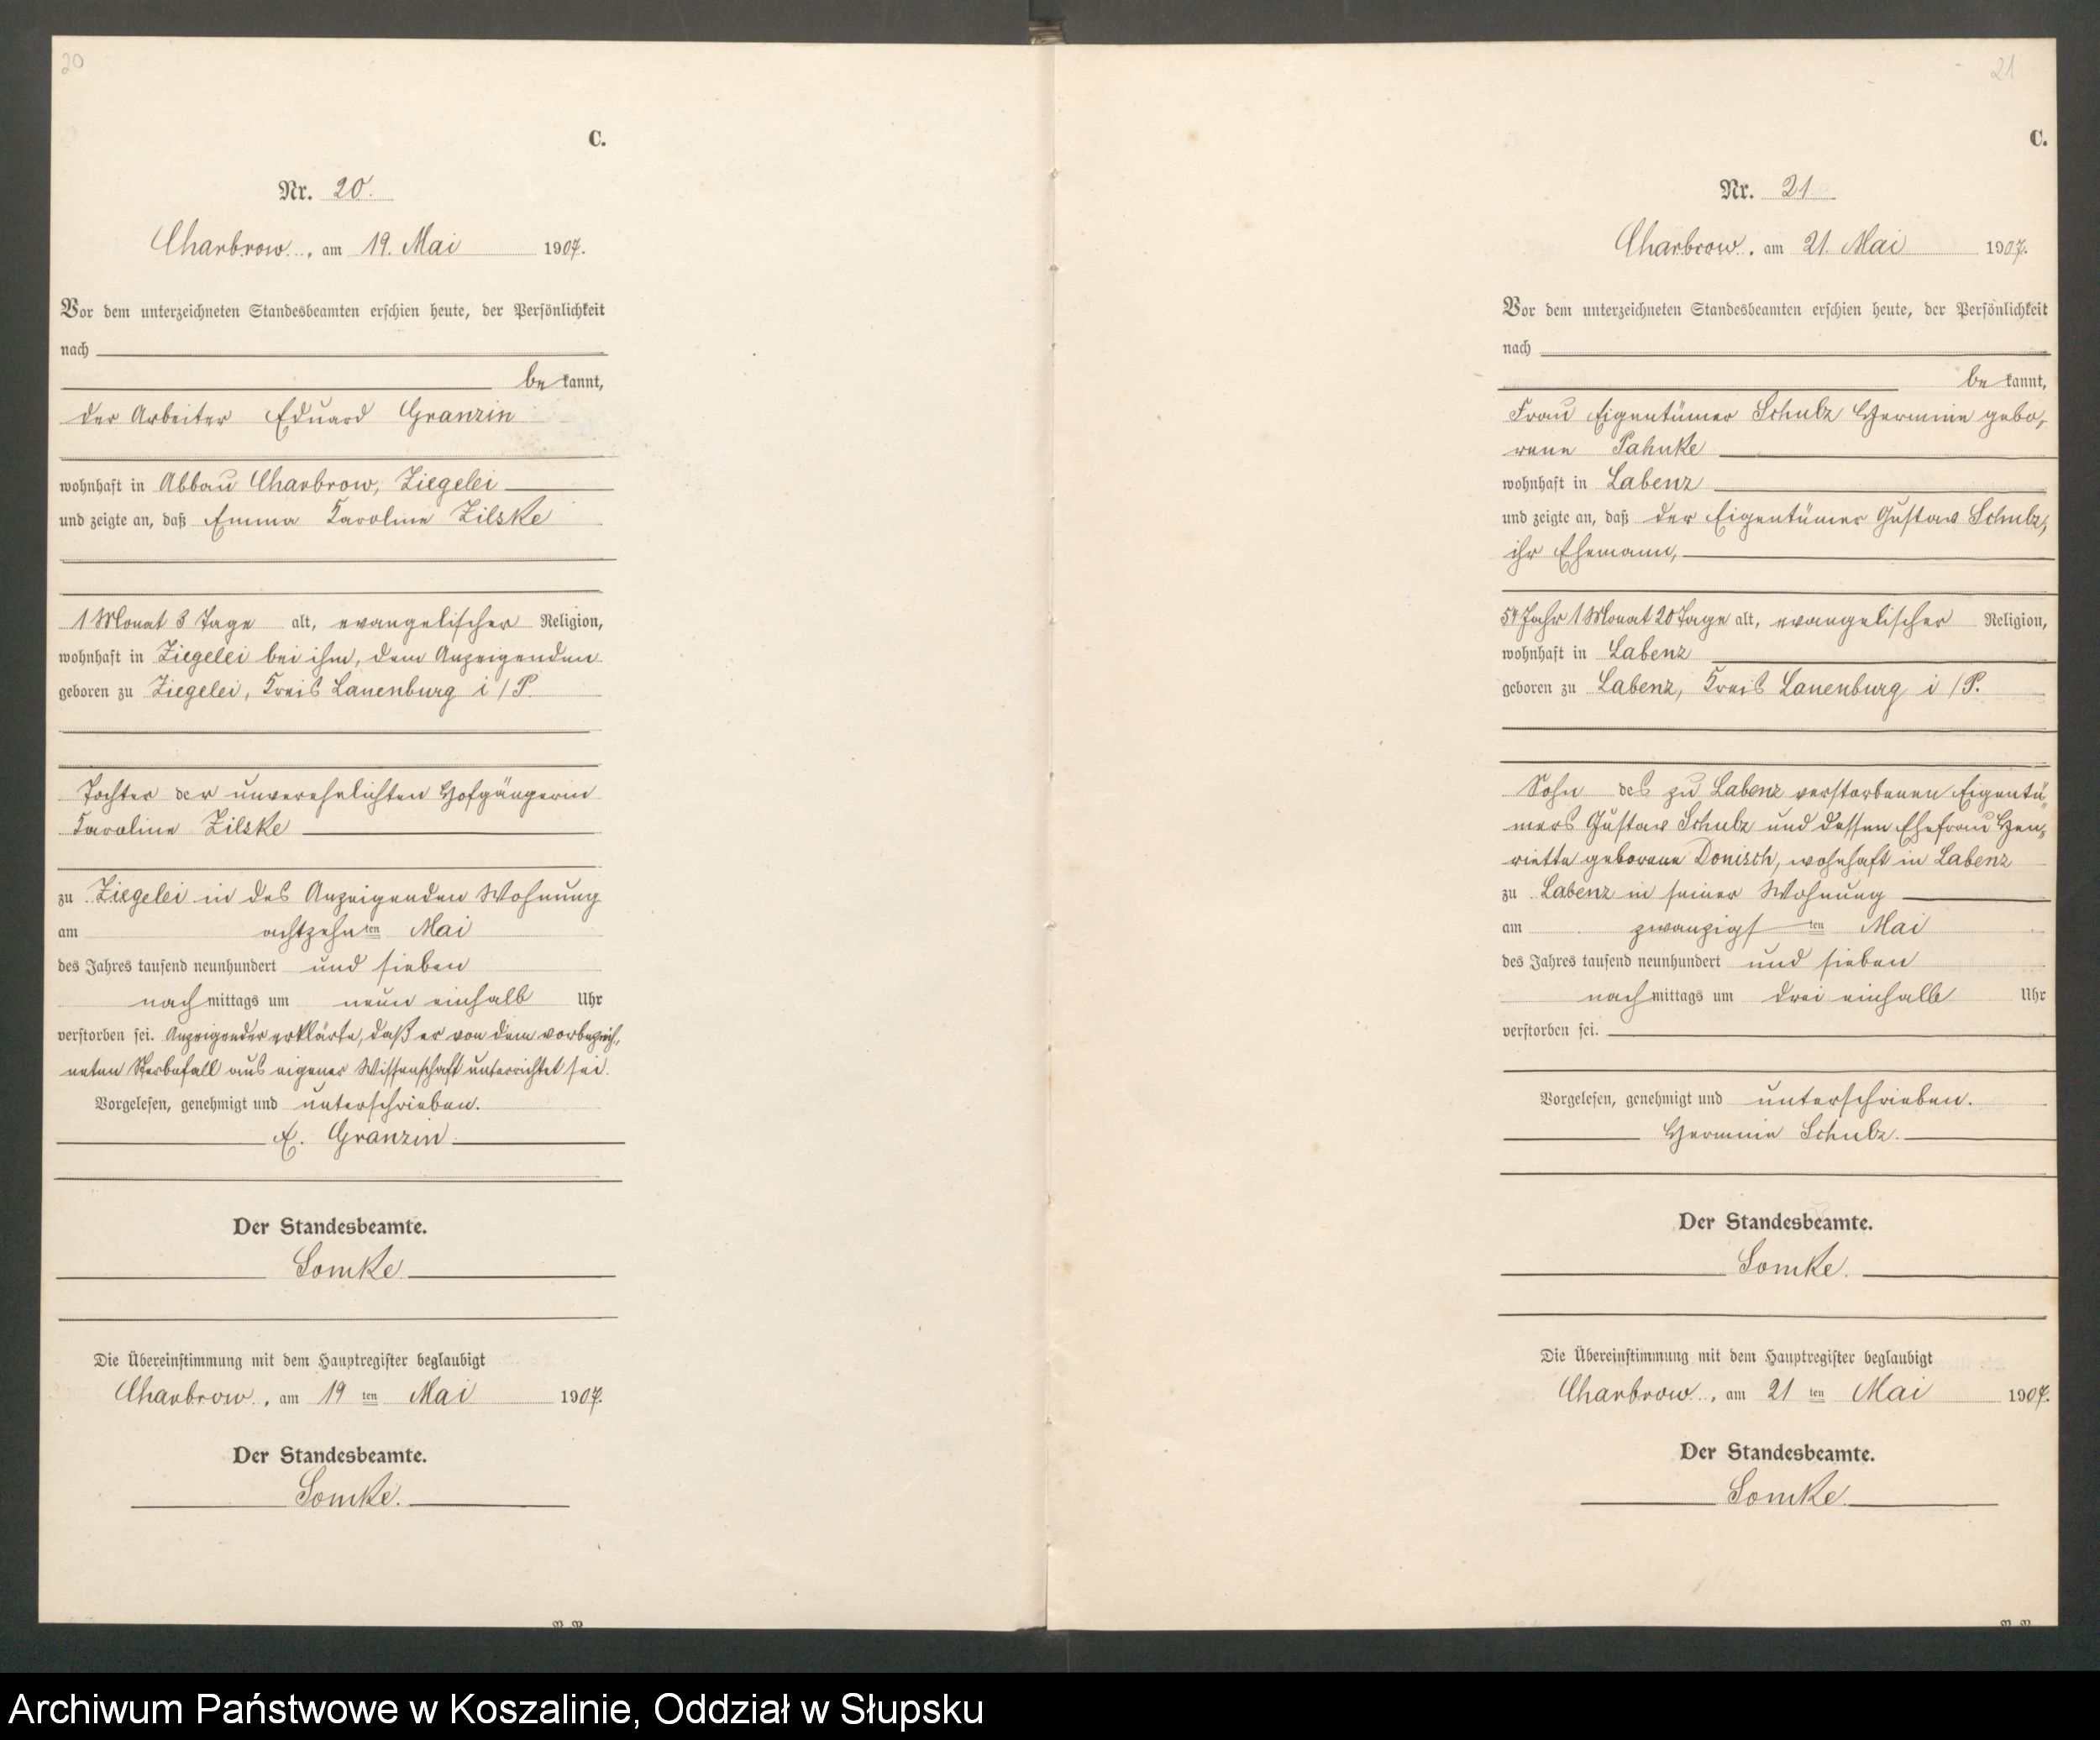 20
C.
Nr. 20.
Charbrow, am 19. Mai 1907.
Vor dem unterzeichneten Standesbeamten erschien heute, der Persönlichkeit
nach
be kannt,
der Arbeiter Eduard Granzin
wohnhaft in Abbau Charbrow, Ziegelei
und zeigte an, daß Emma Karoline Zilske
1 Monat 3 Tage alt, evangelischer Religion,
wohnhaft in Ziegelei bei ihm, dem Anzeigenden
geboren zu Ziegelei, Kreis Lauenburg i/P.
Tochter der unverehelichten Hofgängerin
Karoline Zilske
zu Ziegelei in des Anzeigenden Wohnung
am achtzehn ten Mai
des Jahres tausend neunhundert und sieben
nach mittags um neun einhalb Uhr
verstorben sei. Anzeigender erklärte, daß er von dem vorbezeich-
neten Sterbefall aus eigener Wissenschaft unterrichtet sei.
Vorgelesen, genehmigt und unterschrieben.
E. Granzin.
Der Standesbeamte.
Somke
Die Übereinstimmung mit dem Hauptregister beglaubigt
Charbrow, am 19 ten Mai 1907.
Der Standesbeamte.
Somke.
21
C.
Nr. 21
Charbrow, am 21. Mai 1907.
Vor dem unterzeichneten Standesbeamten erschien heute, der Persönlichkeit
nach
be kannt,
Frau Eigentümer Schulz Hermine gebo-
rene Pahnke
wohnhaft in Labenz
und zeigte an, daß der Eigentümer Gustav Schulz,
ihr Ehemann,
54 Jahr 1 Monat 20 Tage alt, evangelischer Religion,
wohnhaft in Labenz
geboren zu Labenz, Kreis Lauenburg i/P.
Sohn des zu Labenz verstorbenen Eigentü-
mers Gustav Schulz und dessen Ehefrau Hen-
riette geborene Donisch, wohnhaft in Labenz
zu Labenz in seiner Wohnung
am zwanzigs ten Mai
des Jahres tausend neunhundert und sieben
nach mittags um drei einhalb Uhr
verstorben sei.
Vorgelesen, genehmigt und unterschrieben.
Hermine Schulz.
Der Standesbeamte.
Somke.
Die Übereinstimmung mit dem Hauptregister beglaubigt
Charbrow, am 21 ten Mai 1907.
Der Standesbeamte.
Somke.
Archiwum Państwowe w Koszalinie, Oddział w Słupsku